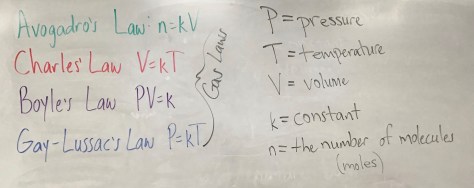 Avogadro's Law: n=kV
Charles' Law V=kT
Boyle's Law PV=k
Gay-Lussac's Law P=kT
Gas Laws
P = pressure
T = temperature
V = volume
k = constant
n = the number of molecules
(moles)